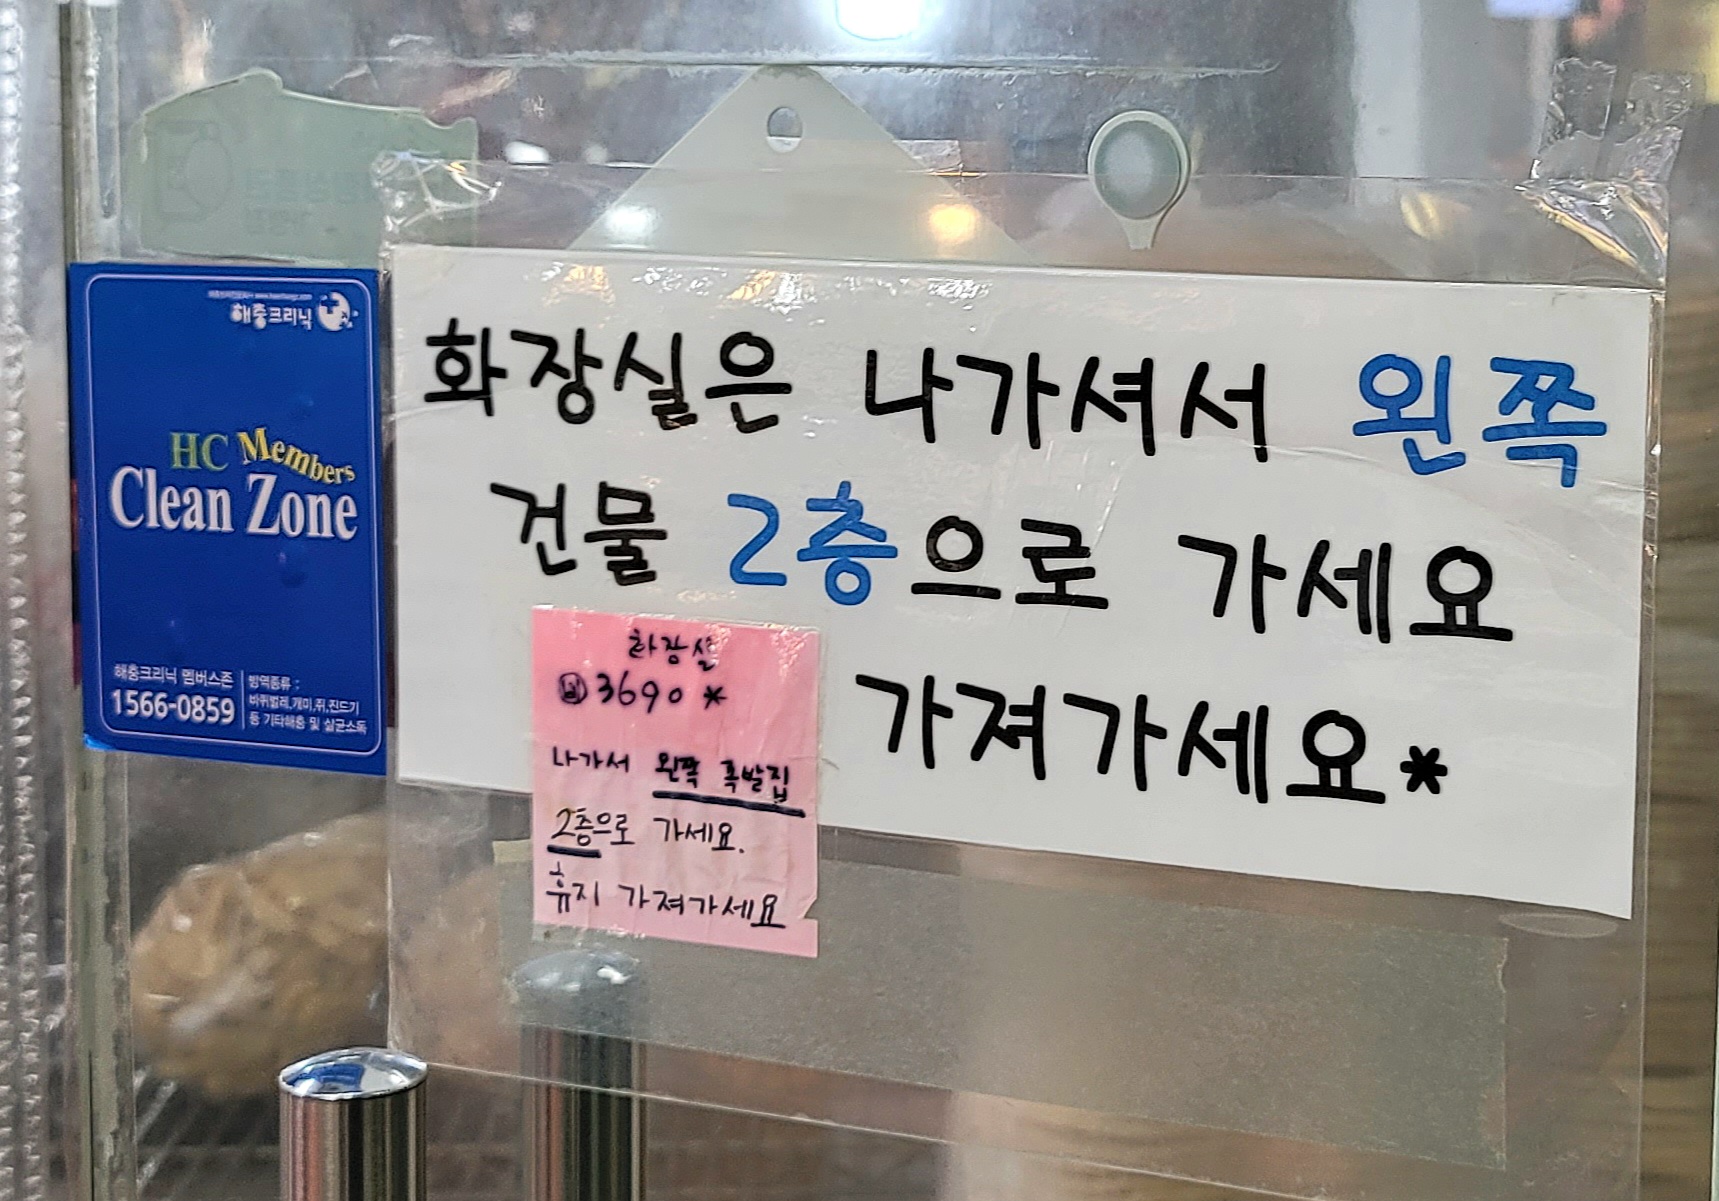 해충크리닉
HC Members
Clean Zone
해충크리닉 멤버스존
1566-0859
방역종류 :
바퀴벌레,개미,쥐,진드기
등 기타해충 및 살균소독
화장실은 나가셔서 왼쪽
건물 2층으로 가세요
가져가세요*
화장실
비 3690 *
나가서 왼쪽 족발집
2층으로 가세요.
휴지 가져가세요